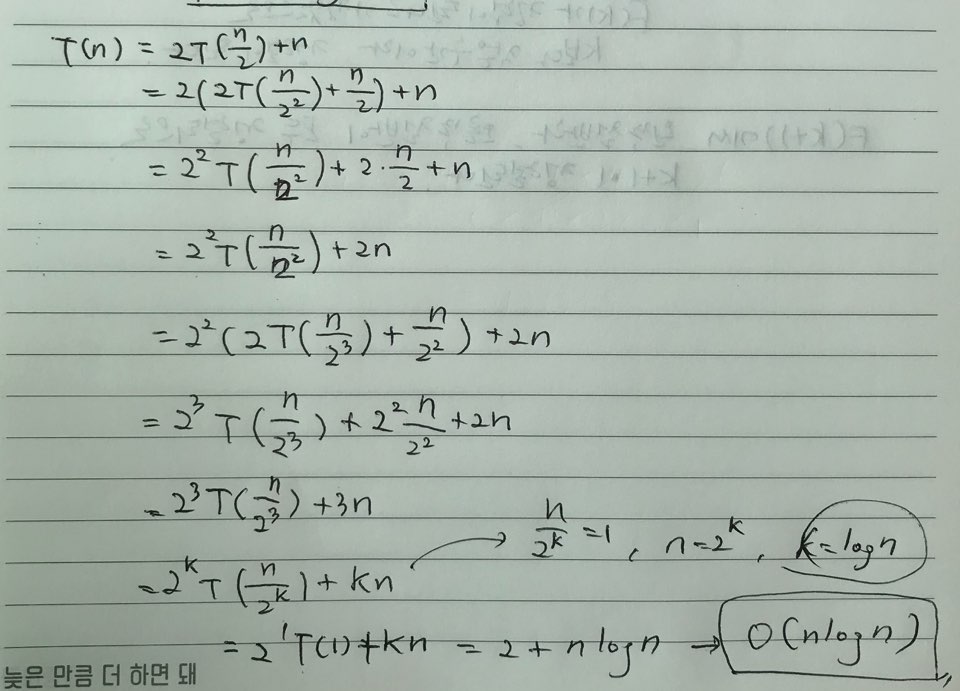 T(n) = 2T(n/2)+n
= 2(2T(n/2²)+n/2)+n
= 2²T(n/2²)+2·n/2+n
= 2²T(n/2²)+2n
= 2²(2T(n/2³)+n/2²)+2n
= 2³T(n/2³)+2²n/2²+2n
= 2³T(n/2³)+3n
n/2ᵏ=1, n=2ᵏ, k=logn
= 2ᵏT(n/2ᵏ)+kn
= 2¹T(1)+kn = 2+nlogn → O(nlogn)
늦은 만큼 더 하면 돼